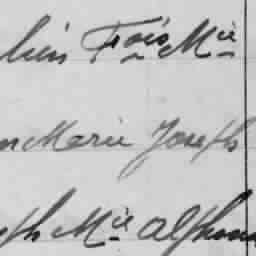 lien Fois Mie
n Marie Joseph
ph Mie Alphons